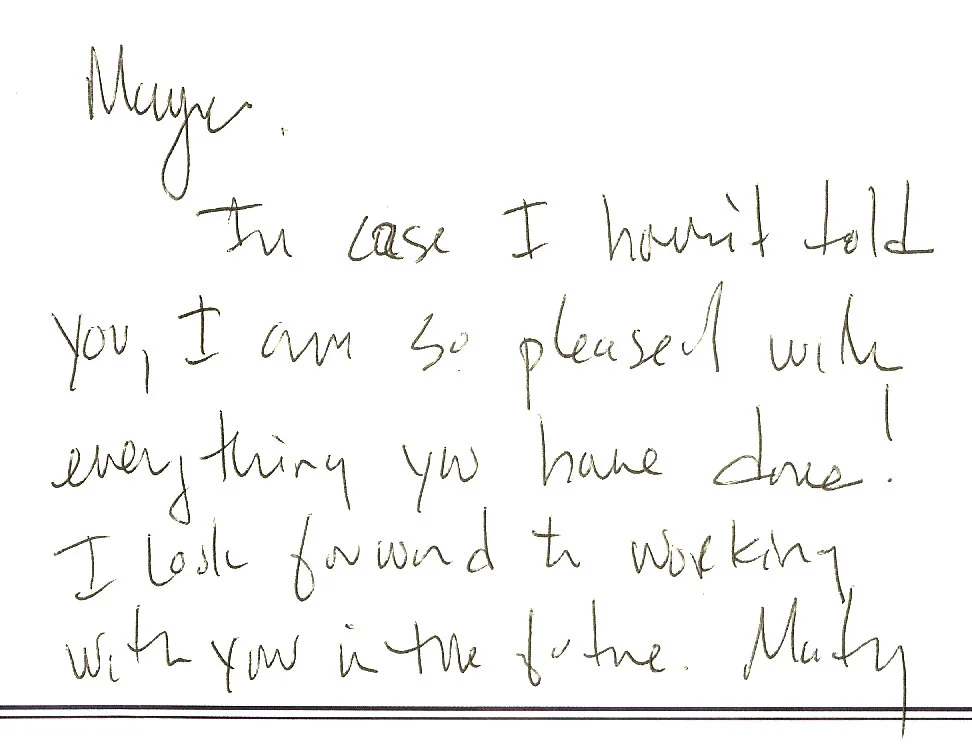 In case I haven't told
you, I am so pleased with
everything you have done!
I look forward to working
with you in the future.